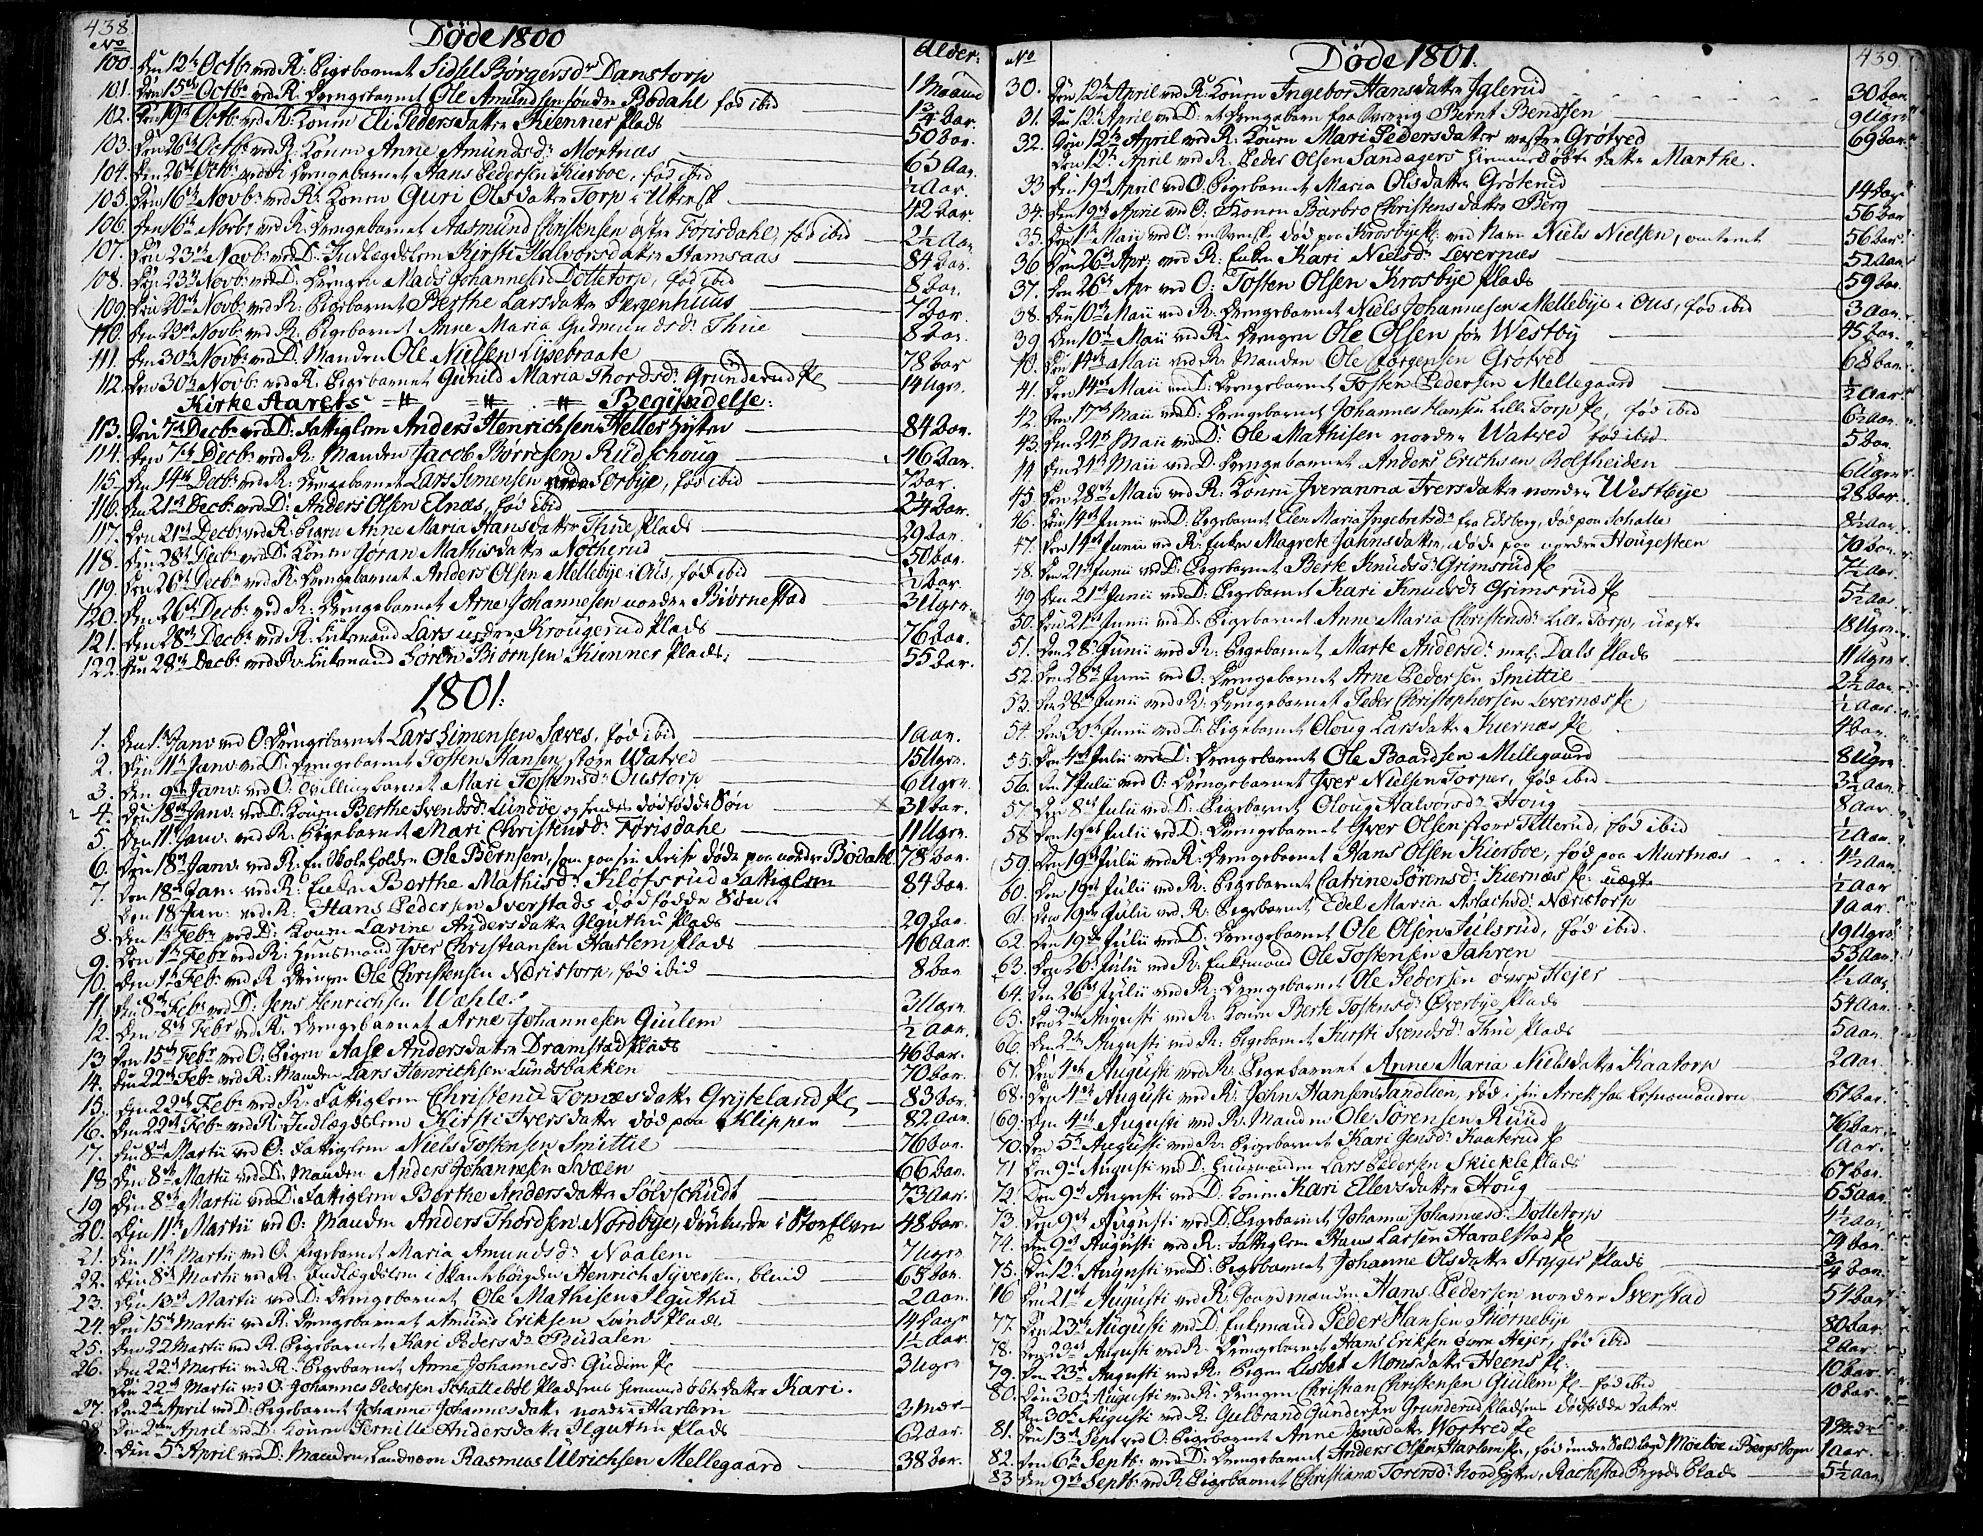 438.
Døde 1800
No
Alder:
100. Den 12te Octbr ved R: Pigebarnet Sidsel Børgersdr Danstorp 1 Maaned
101. Den 15de Octbr ved R: Drengebarnet Ole Amundsen søndre Bødahl fød ibid 1 3/4 Aar.
102. Den 19de Octb: ved R: Konen Eli Pedersdatter Kienner Plads 50 Aar.
103. Den 26de Octbr ved R: Konen Anne Amundsdr Mortnæs 65 Aar.
104. Den 26de Octbr ved R Drengebarnet Hans Pedersen Kierboe, fød ibid 1/2 Aar.
105. Den 16de Novbr ved R: Konen Guri Olsdatter Torp i Utensk 42 Aar.
106. Den 16de Novbr ved R: Drengebarnet Aasmund Christensen østre Førisdahl, fød ibid 2 1/2 Aar
107. Den 23de Novb: ved D: Indlægdslem Kirsti Halvorsdatter Hamsaas 84 Aar.
108. Den 23de Novb: ved D: Drengen Mads Johannesen Dottetorp, fød ibid 8 Aar.
109. Den 20de Novb: ved R: Pigebarnet Berthe Larsdatter Bergenhuus 7 Aar.
110. Den 23de Novb: ved R: Pigebarnet Anne Maria Gudmundsdr Thue 8 Aar.
111. Den 30te Novb: ved D: Manden Ole Nielsen Lysebraate 78 Aar
112. Den 30te Novb: ved R: Pigebarnet Gunild Maria Thordsdr Grunderud Pl 14 Uger.
Kirke Aarets Begyndelse:
113. Den 7de Decb: ved D: Fattiglem Anders Henrichsen Heller 84 Aar.
114. Den 7de Decb: ved R: Manden Jacob Børresen Rudschoug 46 Aar.
115. Den 14de Decb: ved R: Drengebarnet Lars Simensen Sørbye, fød ibid 7 Aar.
116. Den 21de Decb: ved D: Anders Olsen Elnæs, fød ibid 24 Aar.
117. Den 21de Decb: ved R: Pigen Anne Maria Hansdatter Thue Plads 29 Aar.
118. Den 28de Decb: ved D: Konen Joran Mathisdatter Nøcherud 50 Aar.
119. Den 26de Decbr ved R: Drengebarnet Anders Olsen Mellebye i Ous, fød ibid 1/2 Aar.
120. Den 26de Decb: ved R: Drengebarnet Arne Johannesen nordre Biørnestad 3 Uger.
121. Den 28de Decb: ved R: Enkemand Lars Krougerud Plads 76 Aar.
122. Den 28de Decb: ved R: Enkemand Søren Biørnsen Kienner Plads; 55 Aar.
1801.
1. Den 1te Janv ved O: Drengebarnet Lars Simensen Sæves, fød ibid 1 Aar.
2. Den 11te Janv: ved D: Drengebarnet Tosten Hansen store Watved 15 Uger.
3. Den 9de Janv: ved O: Tvillingbarnet Mari Tostensdr Oustorp 6 Uger.
4. Den 18de Janv: ved D: Konen Berthe Svendsdr Lundbye og hendes dødfødde Søn 31 Aar.
5. Den 11te Janv: ved R: Pigebarnet Mari Christensdr Førisdahl 11 Uger.
6. Den 18de Janv: ved R: En Skoleholder Ole Berntsen, som paa sin Reise døde paa nordre Bødahl 78 Aar.
7. Den 18de Jan: ved R: Enken Berthe Mathisdr Kløfsrud Fattiglem 84 Aar.
Den 18 Jan: ved R: Hans Pedersen Sverstads dødfødde Søn.
8. Den 1te Feb: ved D: Konen Larine Andersdatter Ilguthu Plads 29 Aar.
9. Den 1te Feb: ved R: Huusmand Iver Christiansen Harlem Plads 46 Aar.
10. Den 1te Feb: ved R Drengen Ole Christensen Næristorp, fød ibid 8 Aar
11. Den 8de Feb: ved D: Jens Henrichsen Wahle. 3 Uger.
12. Den 8de Febr ved R: Drengebarnet Arne Johannesen Giulem 1/2 Aar.
13. Den 15de Feb: ved O: Pigen Aase Andersdatter Dramstad Plads 46 Aar.
14. Den 22de Feb: ved R: Manden Lars Henrichsen Lundsbakken 70 Aar.
15. Den 22de Feb: ved R: Fattiglem Christence Tomæsdatter Grysteland Pl, 83 Aar.
16. Den 22de Feb: ved R: Indlægdslem Kirsti Iversdatter død paa Klippen 82 Aar.
17. Den 8de Martii ved O: Fattiglem Niels Tostensen Smittie 76 Aar.
18. Den 8de Martii ved D: Manden Anders Johannesen Svæen 66 Aar.
19. Den 8de Martii ved D: Fattiglem Berthe Andersdatter Sølvschudt 73 Aar.
20. Den 11te Martii ved O: Manden Anders Thordsen Nordbye, druknede i Storelven 48 Aar.
21. Den 11te Martii ved O. Pigebarnet Maria Amundsdr Naalem 7 Uger.
22. Den 8de Martii ved R. Indlægdslem i Skantebøygden Henrich Syversen, blind 65 Aar.
23. Den 13de Martii ved D: Drengebarnet Ole Mathisen Ilguthu 2 Aar.
24. Den 15de Martii ved R: Drengebarnet Amund Eriksen Lunds Plads 14 Dage
25. Den 22 Martii ved R. Pigebarnet Kari Pedersdr Budalen 1 1/2 Aar.
26. Den 22de Martii ved R: Pigebarnet Anne Johannesdr Gudim Pl 3 Uger
Den 22de Martii ved O. Johannes Pedersen Schattebøl Pladsens hiemmedøbte datter Kari.
27. Den 2de April ved D: Pigebarnet Johanne Johannesdatter nordre Harlem 3 Mdr
28. Den 2den April ved D: Konen Pernille Andersdatter Ilguthu Plads 62 Aar.
Den 5te April ved D: Manden Landværn Rasmus Ulrichsen Mellegaard 38 Aar.
439.
Døde 1801.
No
30. Den 12te April ved R: Konen Ingebor Hansdatter Iglerud 30 Aar.
31. Den 12te April ved D: et Drengebarn fra Sverrig Bernt Bendtsen 9 Uger
32. Den 12te April ved R: Konen Mari Pedersdatter vestre Grøtved 69 Aar.
Den 12te April ved R. Peder Olsen Sandagers hiemmedøbte datter Marthe.
33. Den 19de April ved O. Pigebarnet Maria Olsdatter Grøterud 14 Dage
34. Den 19de April ved O. Konen Barbro Christensdatter Berg 56 Aar
35. Den 1te Maii ved O: en Svensk død paa Krosbye Pl: ved Navn Niels Nielsen, omtrent 56 Aar.
36. Den 26de Apr: ved R: Enken Kari Nielsdr Levernæs 52 Aar
37. Den 26de Apr ved O: Tosten Olsen Krosbye Plads 59 Aar.
38. Den 10de Maii ved R: Drengebarnet Niels Johannesen Mellebye i Ous, fød ibid 3 Aar.
39. Den 10de Maii ved R: Drengen Ole Olsen søn Westby 45 Aar.
40. Den 14de Maii ved R: Manden Ole Jørgensen Grøtved 68 Aar.
41. Den 14de Maii ved D: Drengebarnet Tosten Pedersen Mellegaard 1/2 Aar
42. Den 17de Maii ved D: Drengebarnet Johannes Hansen Lille Torp Pl, fød ibid 6 1/2 Aar.
43. Den 24de Maii ved D: Ole Mathisen nordre Watved fød ibid 5 Aar
44. Den 24de Maii ved D: Drengebarnet Anders Erichsen Rolfsheiden 6 Uger
45. Den 28de Maii ved R: Konen Iveranna Iversdatter nordre Westbye 28 Aar.
46. Den 14de Junii ved D: Pigebarnet Elen Maria Ingebretsdr fra Edsberg, død paa Schalle 8 1/2 Aar.
47. Den 14de Junii ved R. Enken Magrete Johnsdatter, døde paa nordre Hougesteen 70 Aar.
48. Den 21de Junii ved D: Pigebarnet Berte Knudsdr Grimsrud Pl 7 1/2 Aar.
49. Den 21de Junii ved D: Pigebarnet Kari Knudsdr Grimsrud Pl 5 1/2 Aar
50. Den 21de Junii ved D: Pigebarnet Anne Maria Christensdr Lille Torp, uægte 18 Uger.
51. Den 28de Junii ved R: Pigebarnet Marte Andersdr mel: Dals Plads 11 Uger
52. Den 28de Junii ved O: Drengebarnet Arne Pedersen Smittie 2 1/2 Aar.
53. Den 28de Junii ved R: Drengebarnet Peder Christophersen Levernæs Pl 1/2 Aar
54. Den 30te Junii ved D: Pigebarnet Oloug Larsdatter Kiernæs Pl 4 Aar.
55. Den 4de Julii ved D: Drengebarnet Ole Baardsen Mellegaard 8 Uger
56. Den 7 Julii ved O: Drengebarnet Iver Nielsen Torper, fød ibid 3 1/2 Aar.
57. Den 8de Julii ved D: Pigebarnet Oloug Halvorsdr Houg 8 Aar.
58. Den 19de Julii ved D: Drengebarnet Iver Olsen store Titterud, fød ibid 1/2 Aar
59. Den 19de Julii ved R: Drengebarnet Hans Olsen Kierboe, fød paa Murtnæs 4 1/2 Aar.
60. Den 19de Julii ved R: Pigebarnet Catrine Sørensdr Kiernæs Pl: uægte 1/2 Aar
61. Den 19de Julii ved R: Pigebarnet Edel Maria Aslachsdr Næristorp 1 Aar.
62. Den 19de Julii ved D: Drengebarnet Ole Olsen Julsrud, fød ibid. 19 Uger.
63. Den 26de Julii ved R: Enkemand Ole Tostensen Jahren 53 Aar.
64. Den 26de Julii ved R: Drengebarnet Ole Pedersen øvre Hejer 1 1/2 Aar
65. Den 2den Augusti ved R: Konen Berte Tostensdr Øverbye Plads 54 Aar.
66. Den 2de Augusti ved R: Pigebarnet Kirsti Svendsdr Thue Plads 5 Aar.
67. Den 4de Augusti ved R: Pigebarnet Anne Maria Nielsdatter Kaatorp 2 Aar.
68. Den 4de Augusti ved R: John Hansen Sandlien, død i sin Arrest hos Lehnsmanden 67 Aar.
69. Den 4de Augusti ved R: Manden Ole Sørensen Ruud 76 Aar.
70. Den 5te Augusti ved R: Pigebarnet Kari Jensdr Kaaterud Pl 1 Aar.
71. Den 9de Augusti ved D: Huusmanden Lars Pedersen Skiekle Plads 67 Aar.
72. Den 9de Augusti ved D: Konen Kari Ellevsdatter Houg 65 Aar.
73. Den 9de Augusti ved D. Pigebarnet Johanne Johannesdr Dottetorp 4 1/2 Aar
74. Den 9de Augusti ved R: Fattiglem Hans Larsen Haralstad Pl 74 Aar.
75. Den 12te Augusti ved D: Pigebarnet Johanne Olsdatter Stryger Plads 3/4 Aar.
76. Den 21de Augusti ved R: Gaardmanden Hans Pedersen nordre Sverstad 54 Aar
77. Den 23de Augusti ved D. Enkemand Peder Hansen Biørnebye 80 Aar.
78. Den 23de Augusti ved R: Drengebarnet Hans Eriksen øvre Hejer, fød ibid 2 Aar.
79. Den 23de Augusti ved R. Pigen Lisbet Monsdatter Heens Pl. 10 Aar
80. Den 30te Augusti ved R: Drengen Christian Christensen Giulem Pl fød ibid 10 Aar.
Den 30te Augusti ved R: Gulbrand Gundersen Grunderud Pladsens dødfødde datter.
81. Den 13de Sept ved O: Pigebarnet Anne Jensdatter Wortved Pl
82. Den 6te Septb: ved D: Drengebarnet Anders Olsen Harlem Pl, fød under Soldboed Moeboe i Bergs Sogn 1 Aar.
83. Den 9de Septb: ved R Pigebarnet Christiana Torersdr Nordbye, Rachestad Plads 5 1/2 Aar